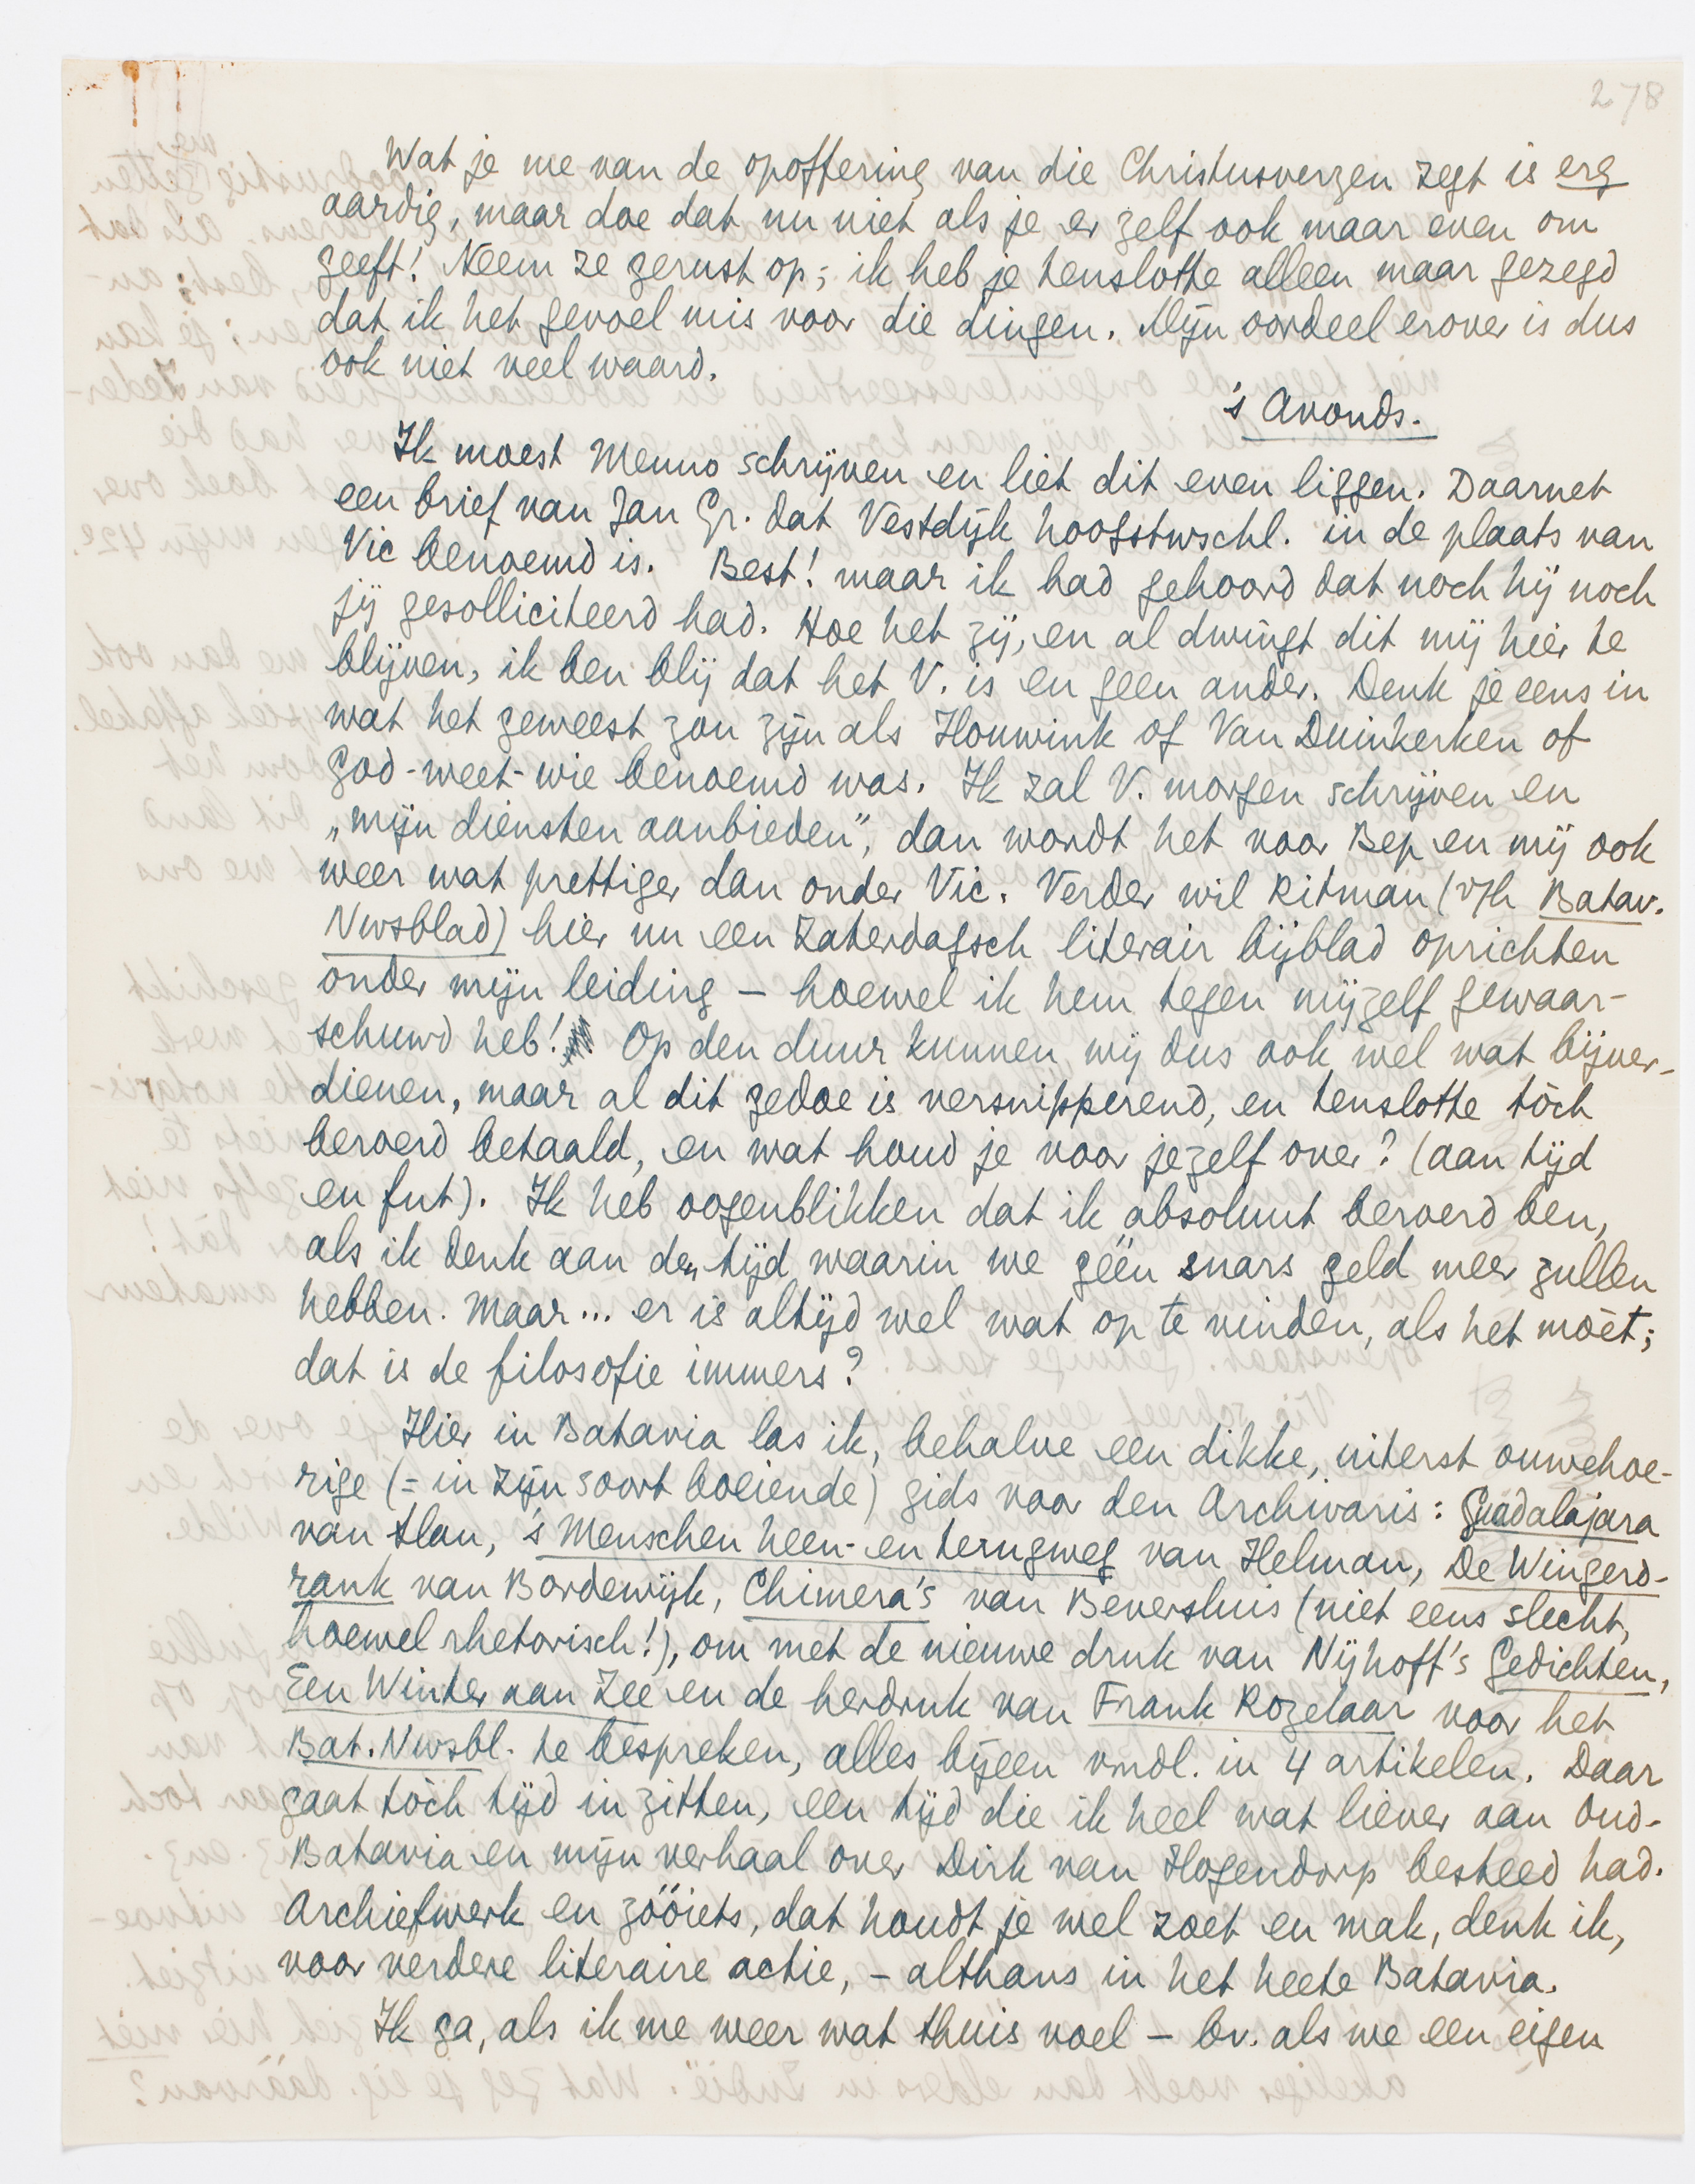 278
Wat je me van de opoffering van die Christusverzen zegt is erg
aardig, maar doe dat nu niet als je er zelf ook maar even om
geeft! Neem ze gerust op; ik heb je tenslotte alleen maar gezegd
dat ik het gevoel mis voor die dingen. Mijn oordeel erover is dus
ook niet veel waard.
's Avonds.
Ik moest Menno schrijven en liet dit even liggen. Daarnet
een brief van Jan Gr. dat Vestdijk hoofstwschl. in de plaats van
Vic benoemd is. Best! maar ik had gehoord dat noch hij noch
jij gesolliciteerd had. Hoe het zij, en al dwingt dit mij hier te
blijven, ik ben blij dat het V. is en geen ander. Denk je eens in
wat het geweest zou zijn als Houwink of Van Duinkerken of
god-weet-wie benoemd was. Ik zal V. morgen schrijven en
„mijn diensten aanbieden", dan wordt het voor Bep en mij ook
weer wat prettiger dan onder Vic. Verder wil Ritman (v/h Batav.
Nwsblad) hier nu een Zaterdagsch literair bijblad oprichten
onder mijn leiding – hoewel ik hem tegen mijzelf gewaar-
schuwd heb! Op den duur kunnen wij dus ook wel wat bijver-
dienen, maar al dit gedoe is versnipperend, en tenslotte tòch
beroerd betaald, en wat houd je voor jezelf over? (aan tijd
en fut). Ik heb oogenblikken dat ik absoluut beroerd ben,
als ik denk aan den tijd waarin we géén snars geld meer zullen
hebben. Maar... er is altijd wel wat op te vinden, als het mòet;
dat is de filosofie immers?
Hier in Batavia las ik, behalve een dikke, uiterst ouwehoe-
rige (= in zijn soort boeiende) gids voor den Archivaris: Guadalajara
van Slau, 's Menschen heen- en terugweg van Helman, De Wingerd-
rank van Bordewijk, Chimera's van Beversluis (niet eens slecht,
hoewel rhetorisch!), om met de nieuwe druk van Nijhoff's Gedichten,
Een Winter aan Zee en de herdruk van Frank Rozelaar voor het
Bat. Nwsbl. te bespreken, alles bijeen vmdl. in 4 artikelen. Daar
gaat tòch tijd in zitten, een tijd die ik heel wat liever aan Oud-
Batavia en mijn verhaal over Dirk van Hogendorp besteed had.
Archiefwerk en zóóiets, dat houdt je wel zoet en mak, denk ik,
voor verdere literaire actie, – althans in het heete Batavia.
Ik ga, als ik me weer wat thuis voel – bv. als we een eigen